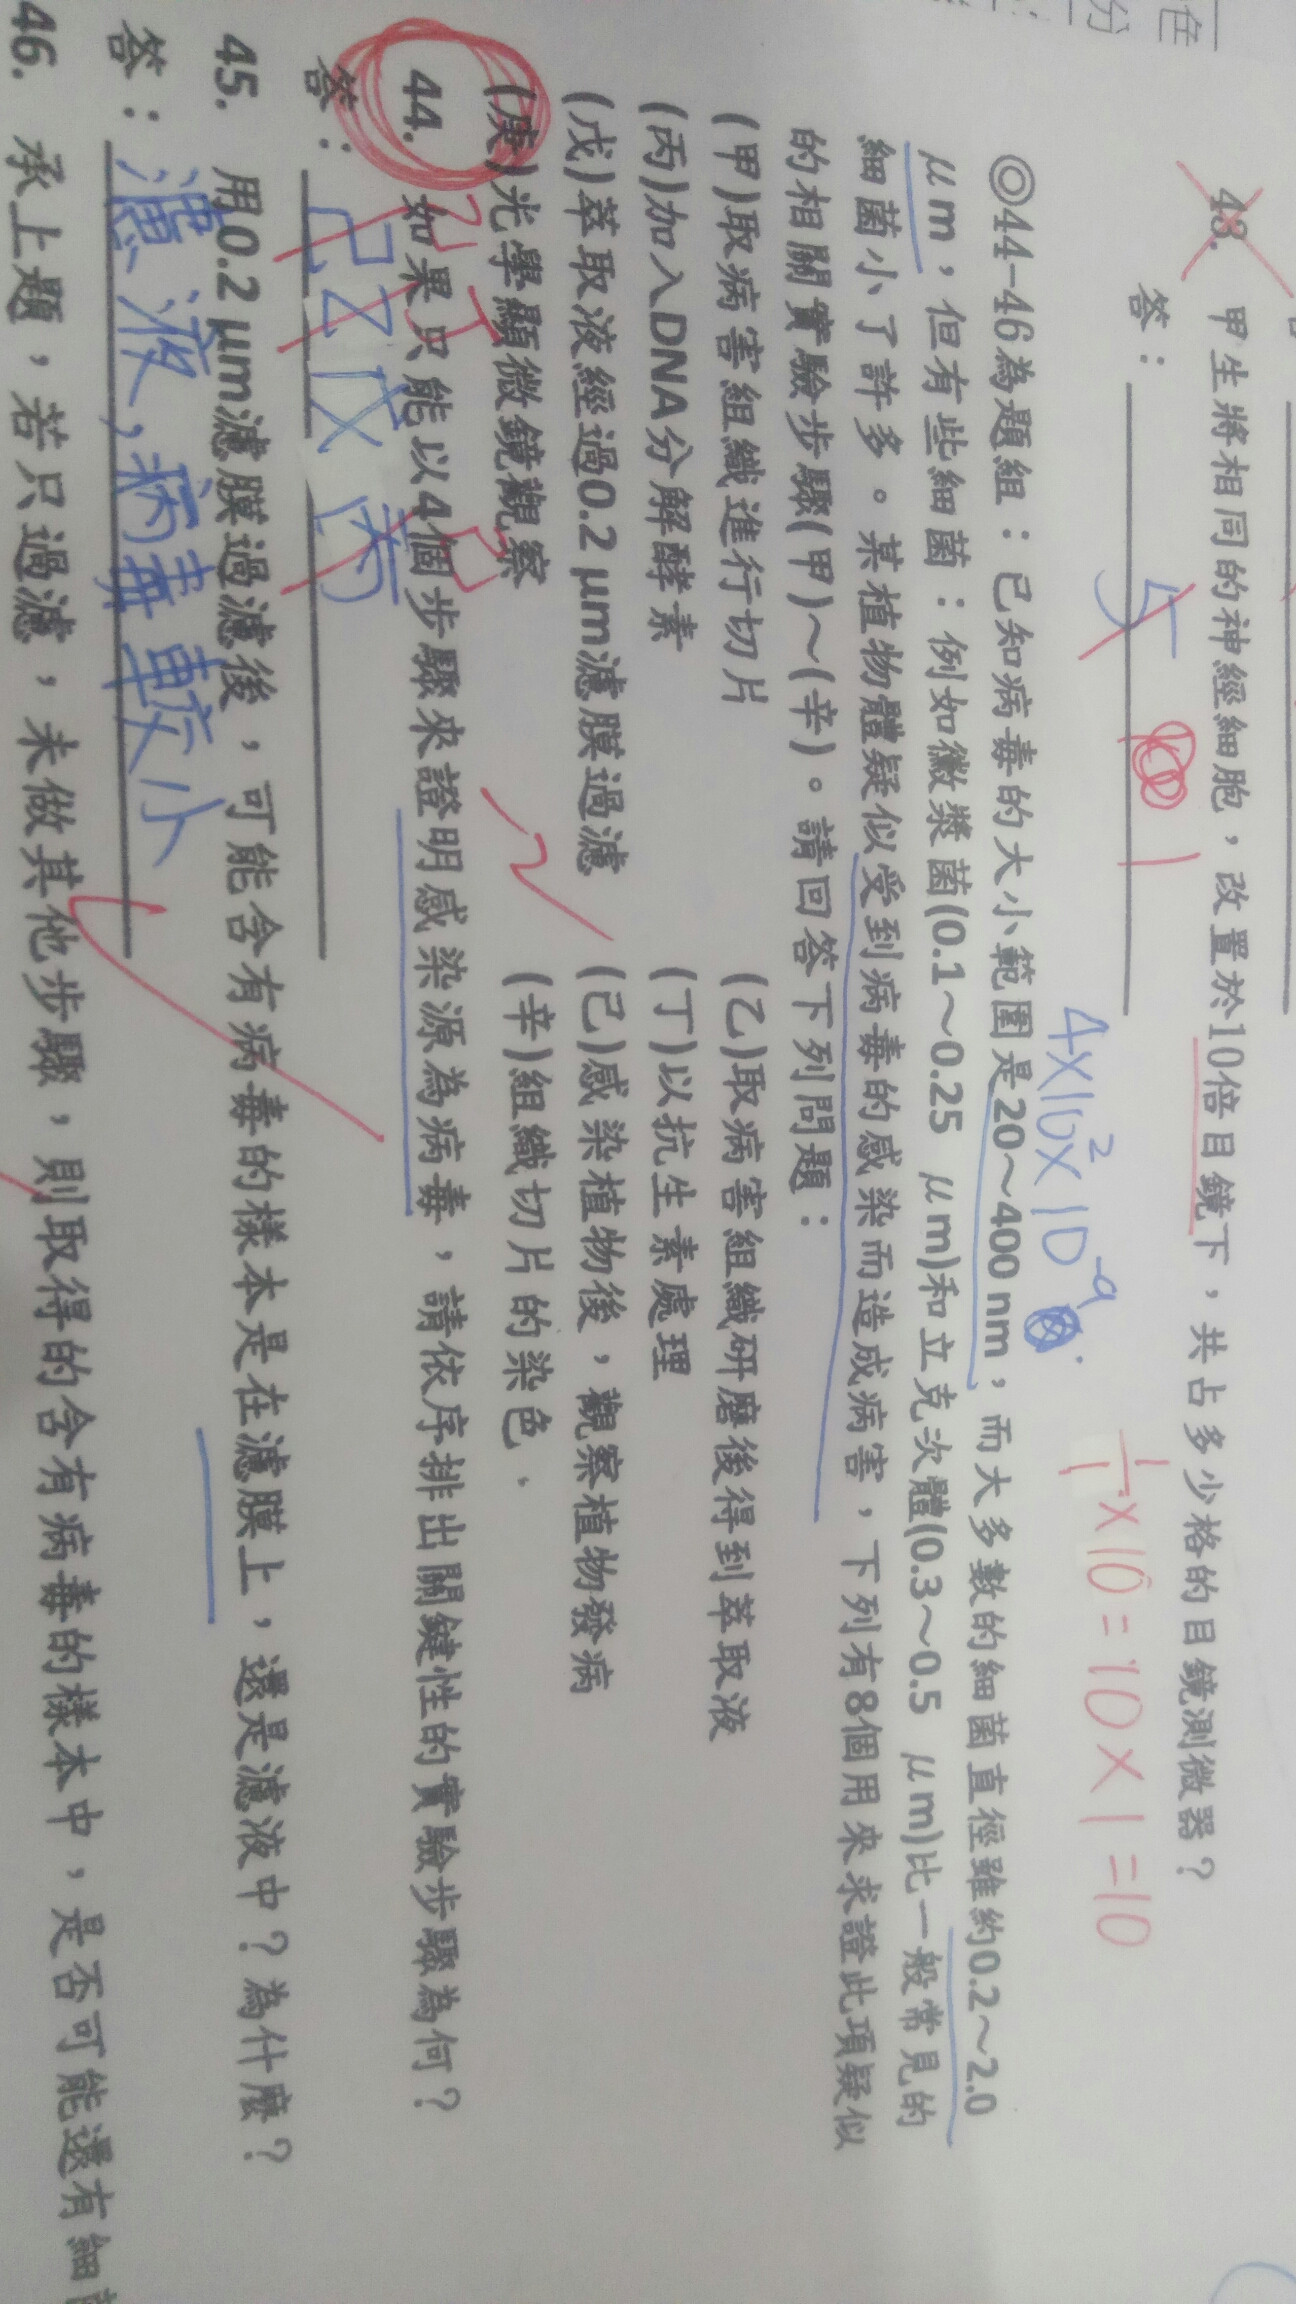 色
分
43. 甲生將相同的神經細胞，改置於10倍目鏡下，共占多少格的目鏡測微器？
答：
1/1×10=10×1=10
4×10²×10⁻⁹
◎44-46為題組：已知病毒的大小範圍是20～400 nm，而大多數的細菌直徑雖約0.2～2.0
μm，但有些細菌：例如黴漿菌(0.1～0.25 μm)和立克次體(0.3～0.5 μm)比一般常見的
細菌小了許多。某植物體疑似受到病毒的感染而造成病害，下列有8個用來求證此項疑似
的相關實驗步驟(甲)～(辛)。請回答下列問題：
(甲)取病害組織進行切片 (乙)取病害組織研磨後得到萃取液
(丙)加入DNA分解酵素 (丁)以抗生素處理
(戊)萃取液經過0.2 μm濾膜過濾 (己)感染植物後，觀察植物發病
(庚)光學顯微鏡觀察 (辛)組織切片的染色．
44. 如果只能以4個步驟來證明感染源為病毒，請依序排出關鍵性的實驗步驟為何？
乙 丁 戊 己
答：己乙戊丙
45. 用0.2 μm濾膜過濾後，可能含有病毒的樣本是在濾膜上，還是濾液中？為什麼？
答：濾液，病毒較小
46. 承上題，若只過濾，未做其他步驟，則取得的含有病毒的樣本中，是否可能還有細